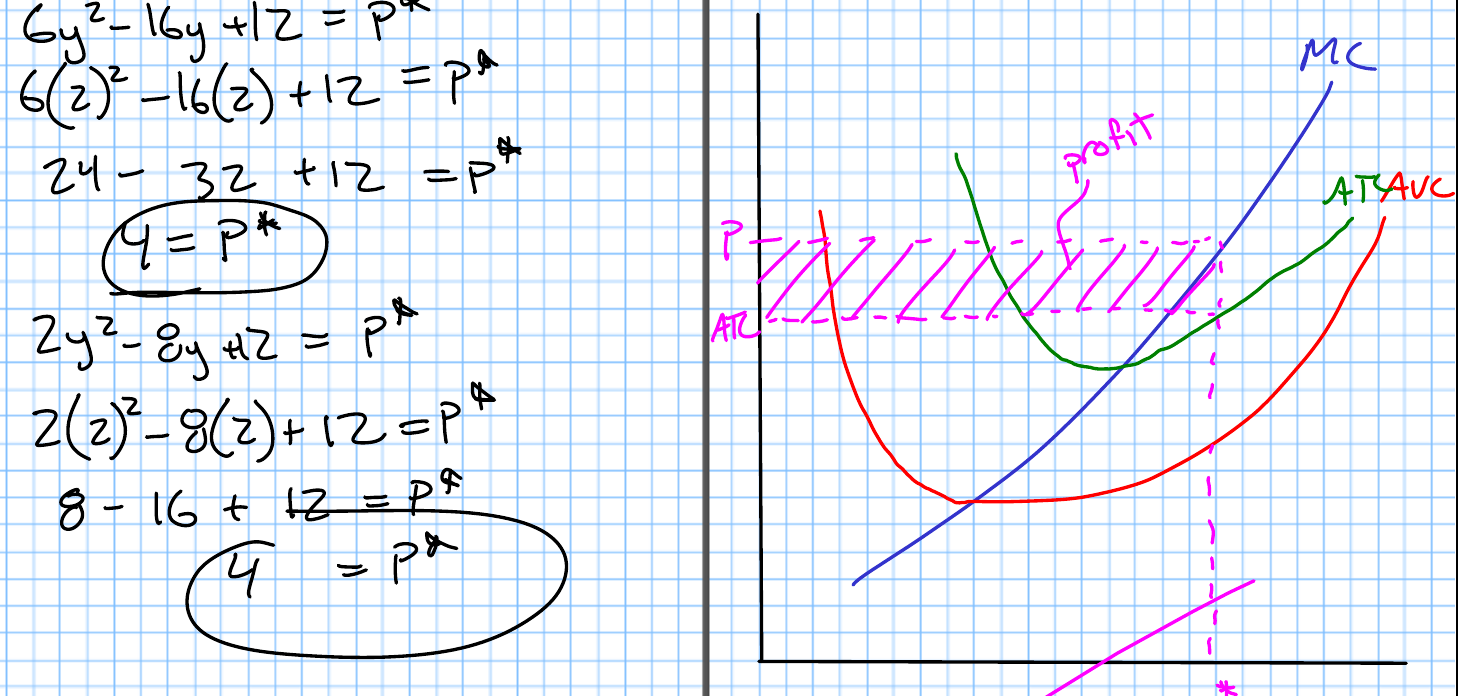 6y² - 16y + 12 = P*
6(2)² - 16(2) + 12 = P*
24 - 32 + 12 = P*
4 = P*
2y² - 8y + 12 = P*
2(2)² - 8(2) + 12 = P*
8 - 16 + 12 = P*
4 = P*
MC
profit
ATC AVC
P
ATC
*